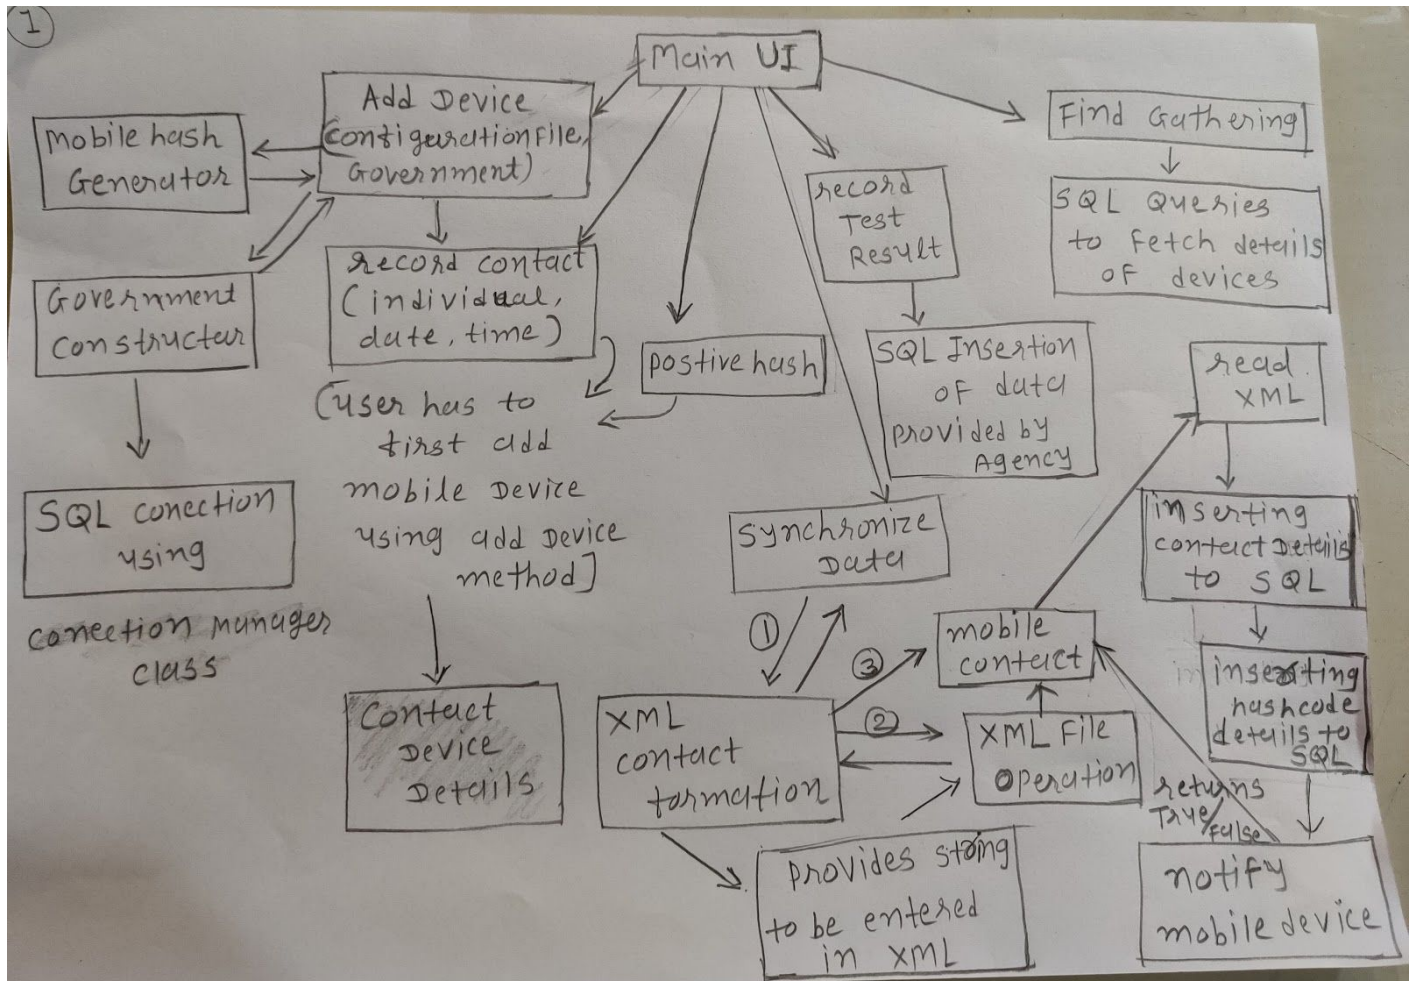 1
Main UI
Add Device
(configurationFile,
Government)
Mobile hash
Generator
Find Gathering
record
Test
Result
SQL Queries
to Fetch details
OF devices
record contact
(individual,
date, time)
Government
constructur
postive hash
SQL Insertion
OF data
provided by
Agency
read
XML
(user has to
first add
mobile Device
using add Device
method]
SQL conection
using
conection manager
class
synchronize
Data
inserting
contact Details
to SQL
1
mobile
contect
3
inserting
hashcode
details to
SQL
Contact
Device
Details
XML
contact
formation
2
XML File
Operation
returns
True/
False
provides string
to be entered
in XML
notify
mobile device